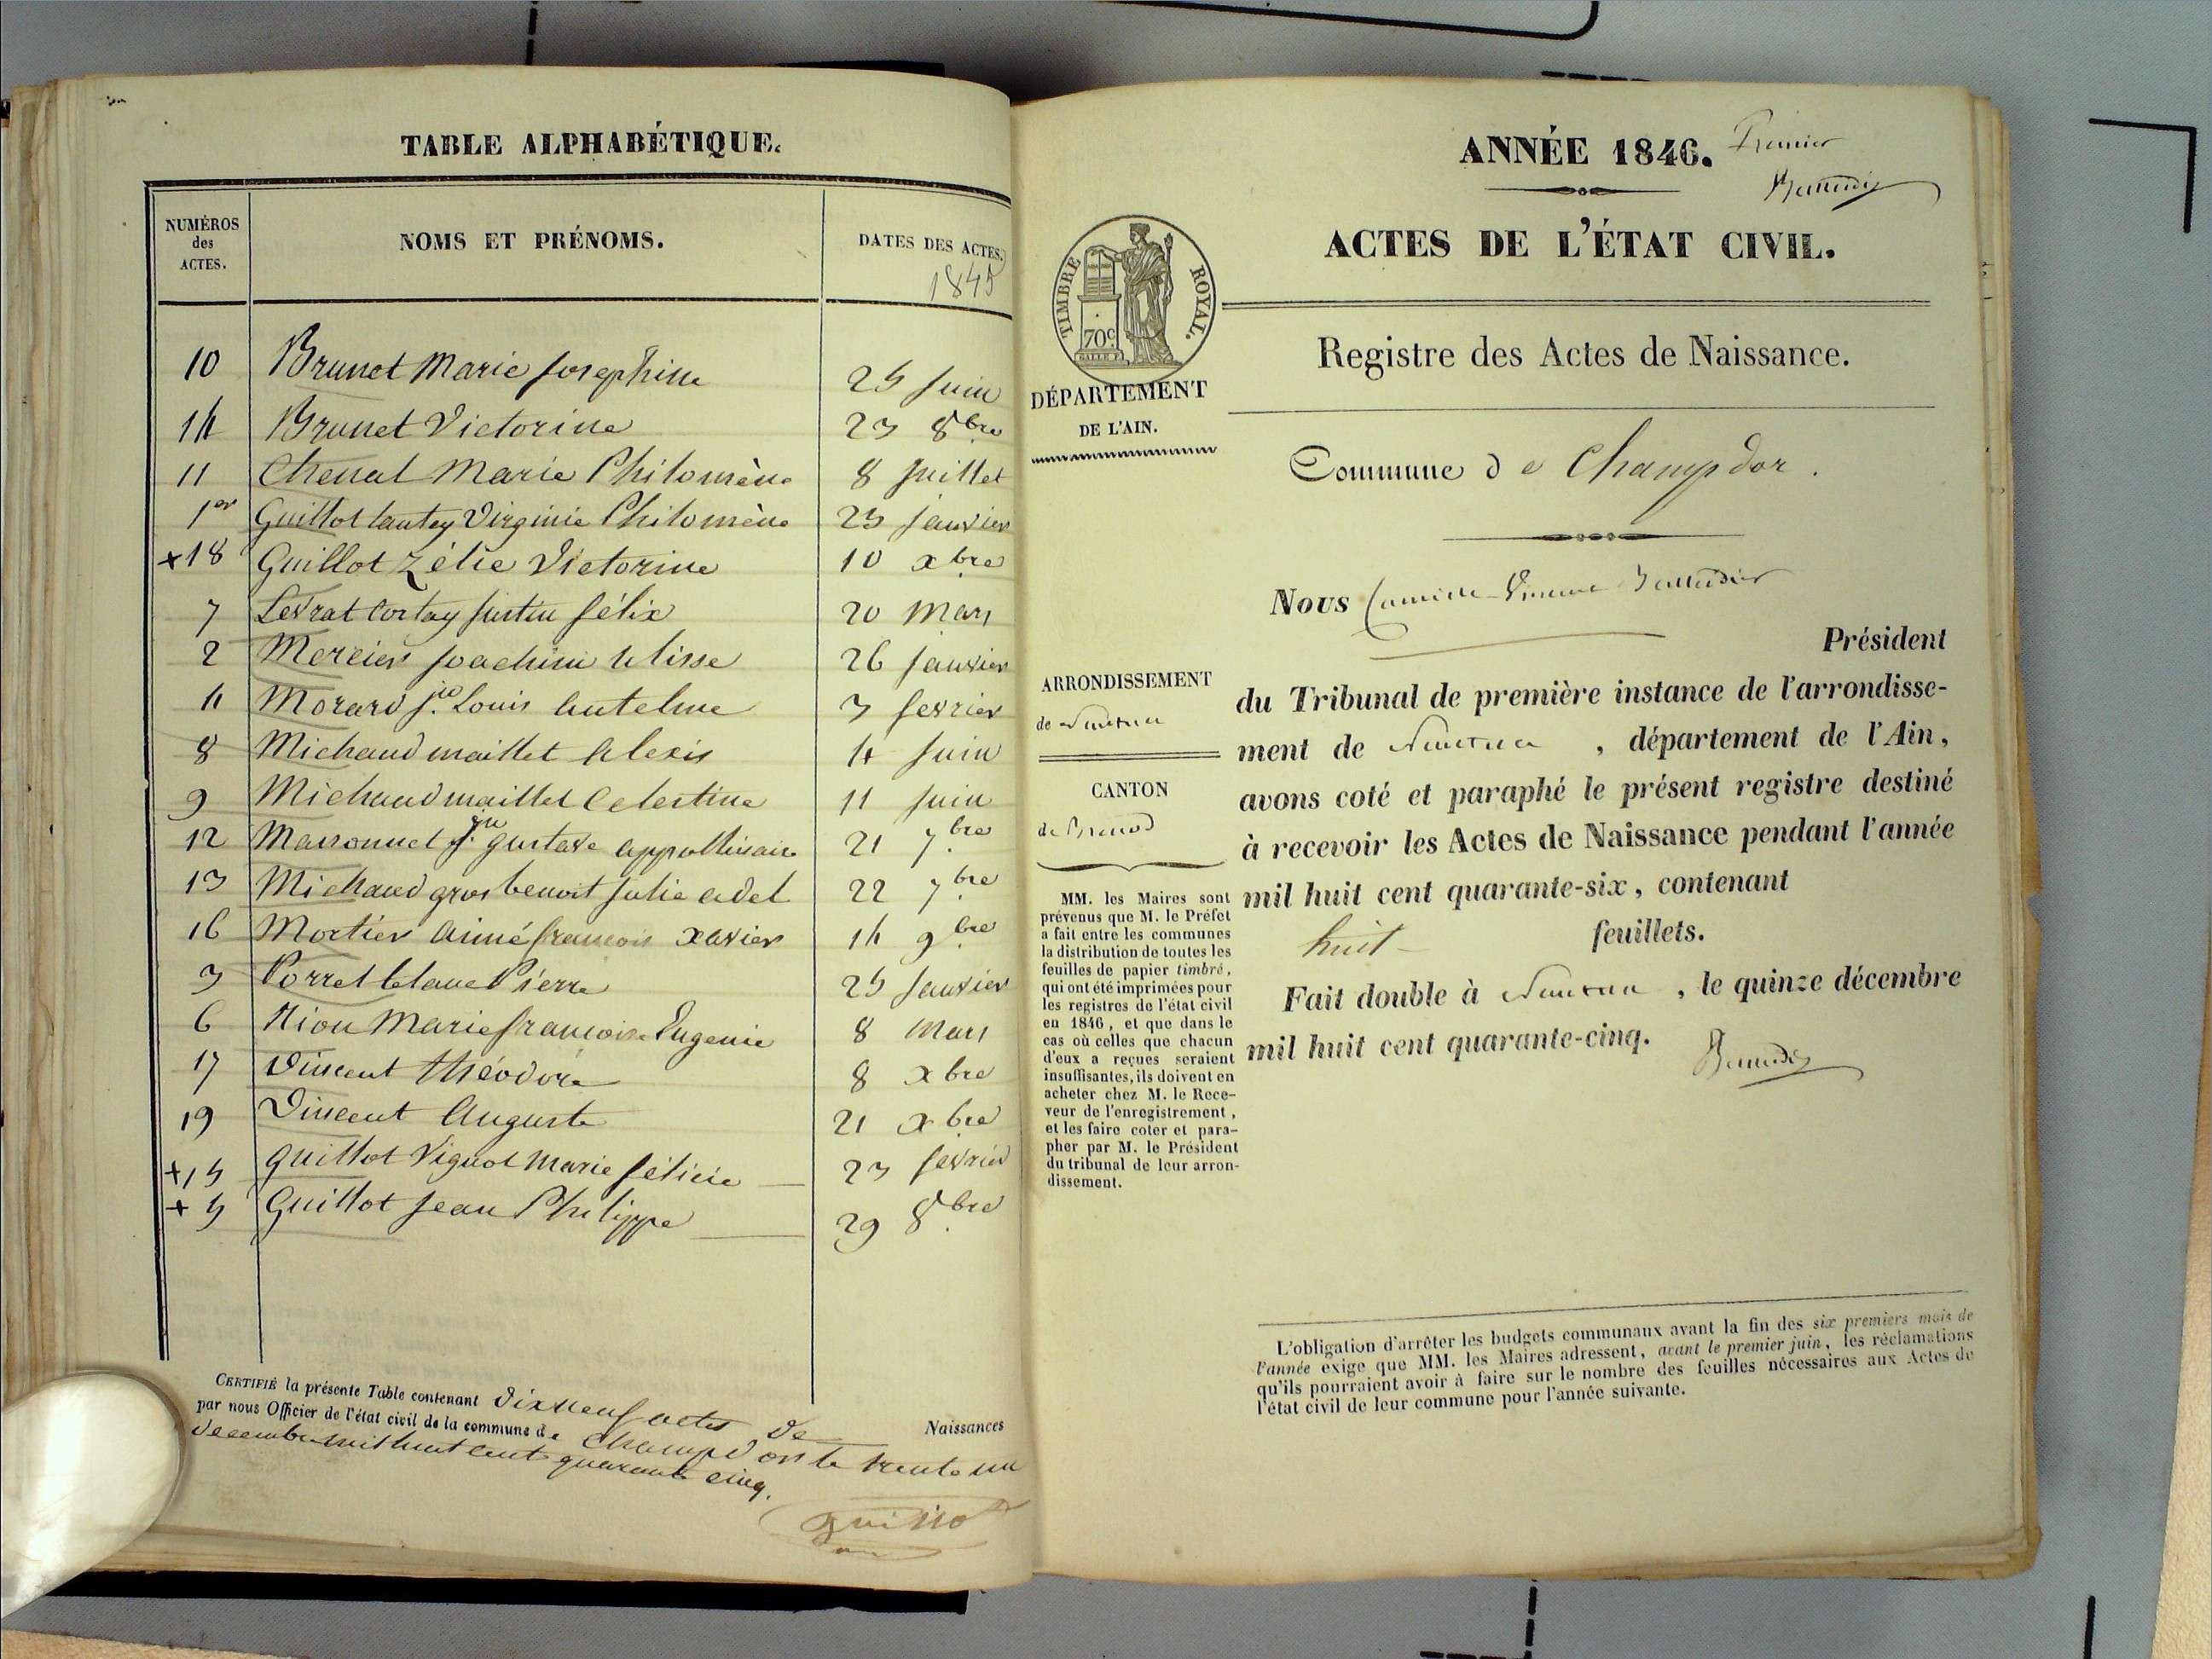 TABLE ALPHABÉTIQUE.
NUMÉROS des ACTES.
NOMS ET PRÉNOMS.
DATES DES ACTES.
1845
10 Brunet Marie Josephine 25 Juin
14 Brunet Victorine 23 8bre
11 Chenal Marie Philomène 8 Juillet
1er Guillot Virginie Philomène 23 Janvier
+18 Guillot Zélie Victorine 10 xbre
7 Levrat Cortay Justin félix 20 Mars
2 Mercier Joachim Ulisse 26 Janvier
4 Morard Louis Antelme 3 fevrier
8 Michaud maillet Alexis 4 Juin
9 Michaud maillet Celestine 11 Juin
12 Massonnet gustave appollinaire 21 7bre
13 Michaud gros benoit Julie adel 22 7bre
16 Mortier Aimé françois xavier 14 9bre
3 Porret Pierre 25 Janvier
6 Marie françoise Eugenie 8 Mars
17 Vincent théodore 8 xbre
19 Vincent Auguste 21 xbre
+15 Guillot Vignot Marie féticie 23 fevrier
+5 Guillot Jean Philippe 29 8bre
CERTIFIÉ la présente Table contenant dixneuf actes de Naissances
par nous Officier de l'état civil de la commune de Champdor le trente un
decembre mil huit cent quarante cinq.
Guillot
ANNÉE 1846.
Premier
ACTES DE L'ÉTAT CIVIL.
TIMBRE ROYAL.
70c
Registre des Actes de Naissance.
DÉPARTEMENT
DE L'AIN.
Commune de Champdor.
Nous
Président
ARRONDISSEMENT
de Nantua
CANTON
de Brenod
du Tribunal de première instance de l'arrondisse-
ment de Nantua, département de l'Ain,
avons coté et paraphé le présent registre destiné
à recevoir les Actes de Naissance pendant l'année
mil huit cent quarante-six, contenant
huit feuillets.
Fait double à Nantua, le quinze décembre
mil huit cent quarante-cinq.
MM. les Maires sont
prévenus que M. le Préfet
a fait entre les communes
la distribution de toutes les
feuilles de papier timbré,
qui ont été imprimées pour
les registres de l'état civil
en 1846, et que dans le
cas où celles que chacun
d'eux a reçues seraient
insuffisantes, ils doivent en
acheter chez M. le Rece-
veur de l'enregistrement,
et les faire coter et para-
pher par M. le Président
du tribunal de leur arron-
dissement.
L'obligation d'arrêter les budgets communaux avant la fin des six premiers mois de
l'année exige que MM. les Maires adressent, avant le premier juin, les réclamations
qu'ils pourraient avoir à faire sur le nombre des feuilles nécessaires aux Actes de
l'état civil de leur commune pour l'année suivante.